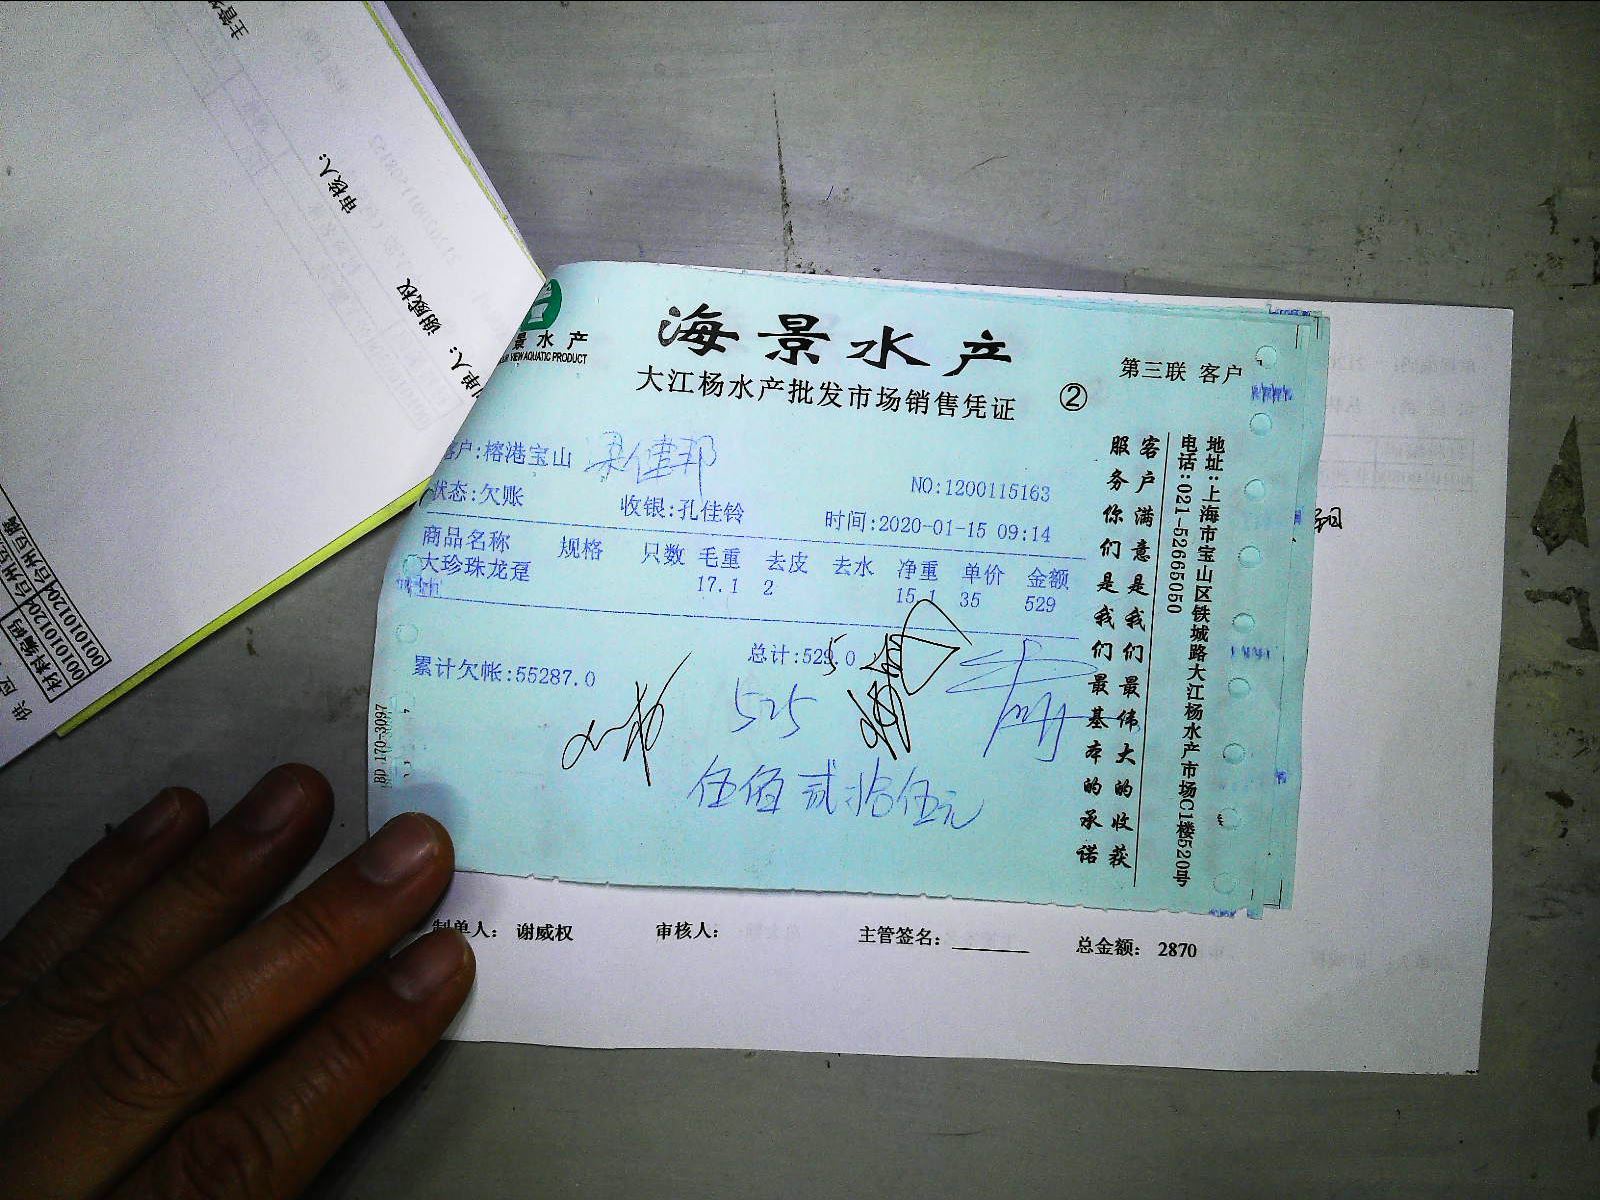 主管签
审核人:
制单人: 谢威权
供应
材料编码
001010120 台州豆腐
001010120 台州豆
景水产
VIEW AQUATIC PRODUCT
海景水产
大江杨水产批发市场销售凭证
②
第三联 客户
客户:榕港宝山
NO:1200115163
状态:欠账 收银:孔佳铃 时间:2020-01-15 09:14
商品名称 规格 只数 毛重 去皮 去水 净重 单价 金额
大珍珠龙趸 17.1 2 15.1 35 529
总计:529.0
累计欠帐:55287.0
525
伍佰贰拾伍元
BD 170-3097
地址:上海市宝山区铁城路大江杨水产市场C1楼520号
电话:021-52665050
客户满意是我们最伟大的收获
服务你们是我们最基本的承诺
制单人: 谢威权 审核人: 主管签名: 总金额: 2870